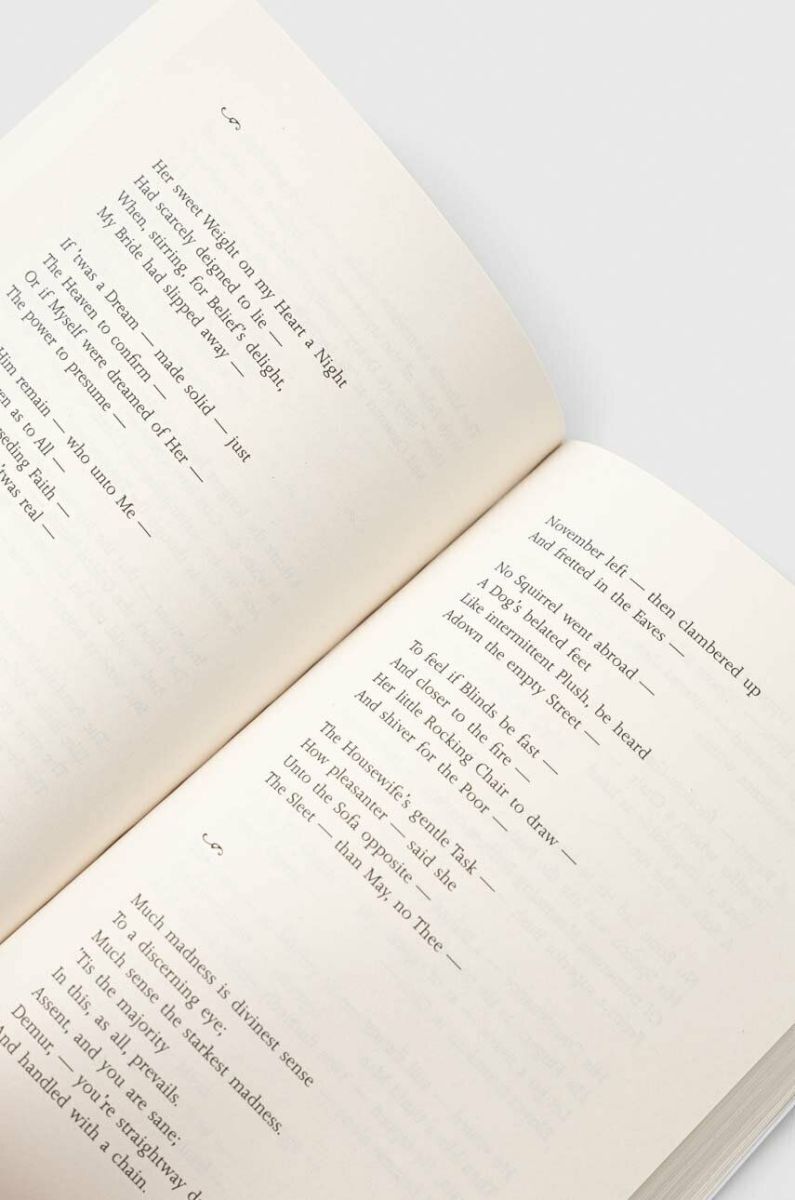 Her sweet Weight on my Heart a Night
Had scarcely deigned to lie —
When, stirring, for Belief's delight,
My Bride had slipped away —
If 'twas a Dream — made solid — just
The Heaven to confirm —
Or if Myself were dreamed of Her —
The power to presume —
Him remain — who unto Me —
as to All —
Faith —
'twas real —
November left — then clambered up
And fretted in the Eaves —
No Squirrel went abroad —
A Dog's belated feet
Like intermittent Plush, be heard
Adown the empty Street —
To feel if Blinds be fast —
And closer to the fire —
Her little Rocking Chair to draw —
And shiver for the Poor —
The Housewife's gentle Task —
How pleasanter — said she
Unto the Sofa opposite —
The Sleet — than May, no Thee —
Much madness is divinest sense
To a discerning eye;
Much sense the starkest madness.
'Tis the majority
In this, as all, prevails.
Assent, and you are sane;
Demur, — you're straightway
And handled with a chain.